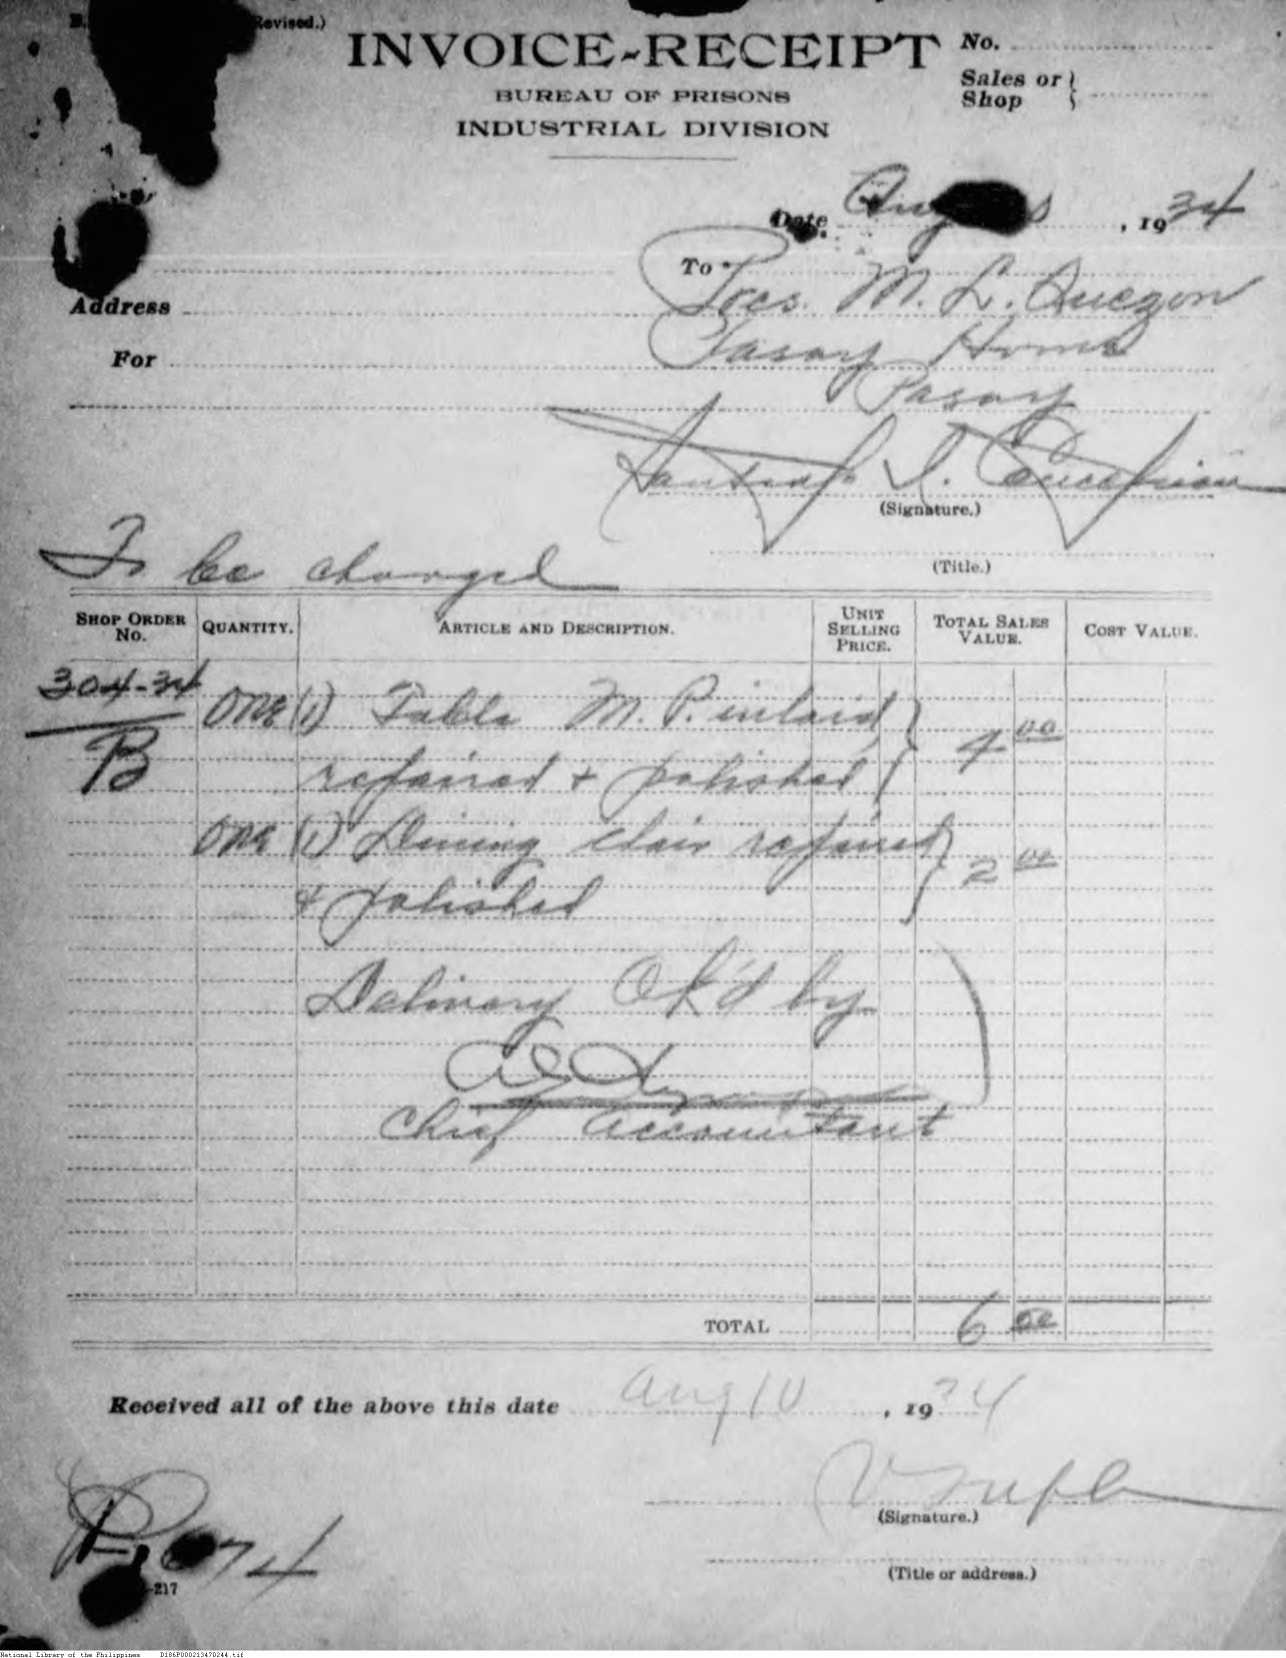 B. (Revised.)
INVOICE-RECEIPT
BUREAU OF PRISONS
INDUSTRIAL DIVISION
No.
Sales or
Shop
Date Aug 8, 1934
To Pres. M. L. Quezon
Address
Pasay Home
For
Pasay
Santiago I. Concepcion
(Signature.)
(Title.)
To be charged
SHOP ORDER No. QUANTITY. ARTICLE AND DESCRIPTION. UNIT SELLING PRICE. TOTAL SALES VALUE. COST VALUE.
304-34 One (1) Table M. P. inlaid
B repaired & polished 4 00
One (1) Dining chair repaired
& polished 2 00
Delivery OK'd by
Chief Accountant
TOTAL 6 00
Received all of the above this date Aug 10, 1934
(Signature.)
(Title or address.)
-217
National Library of the Philippines D186P000213470244.tif